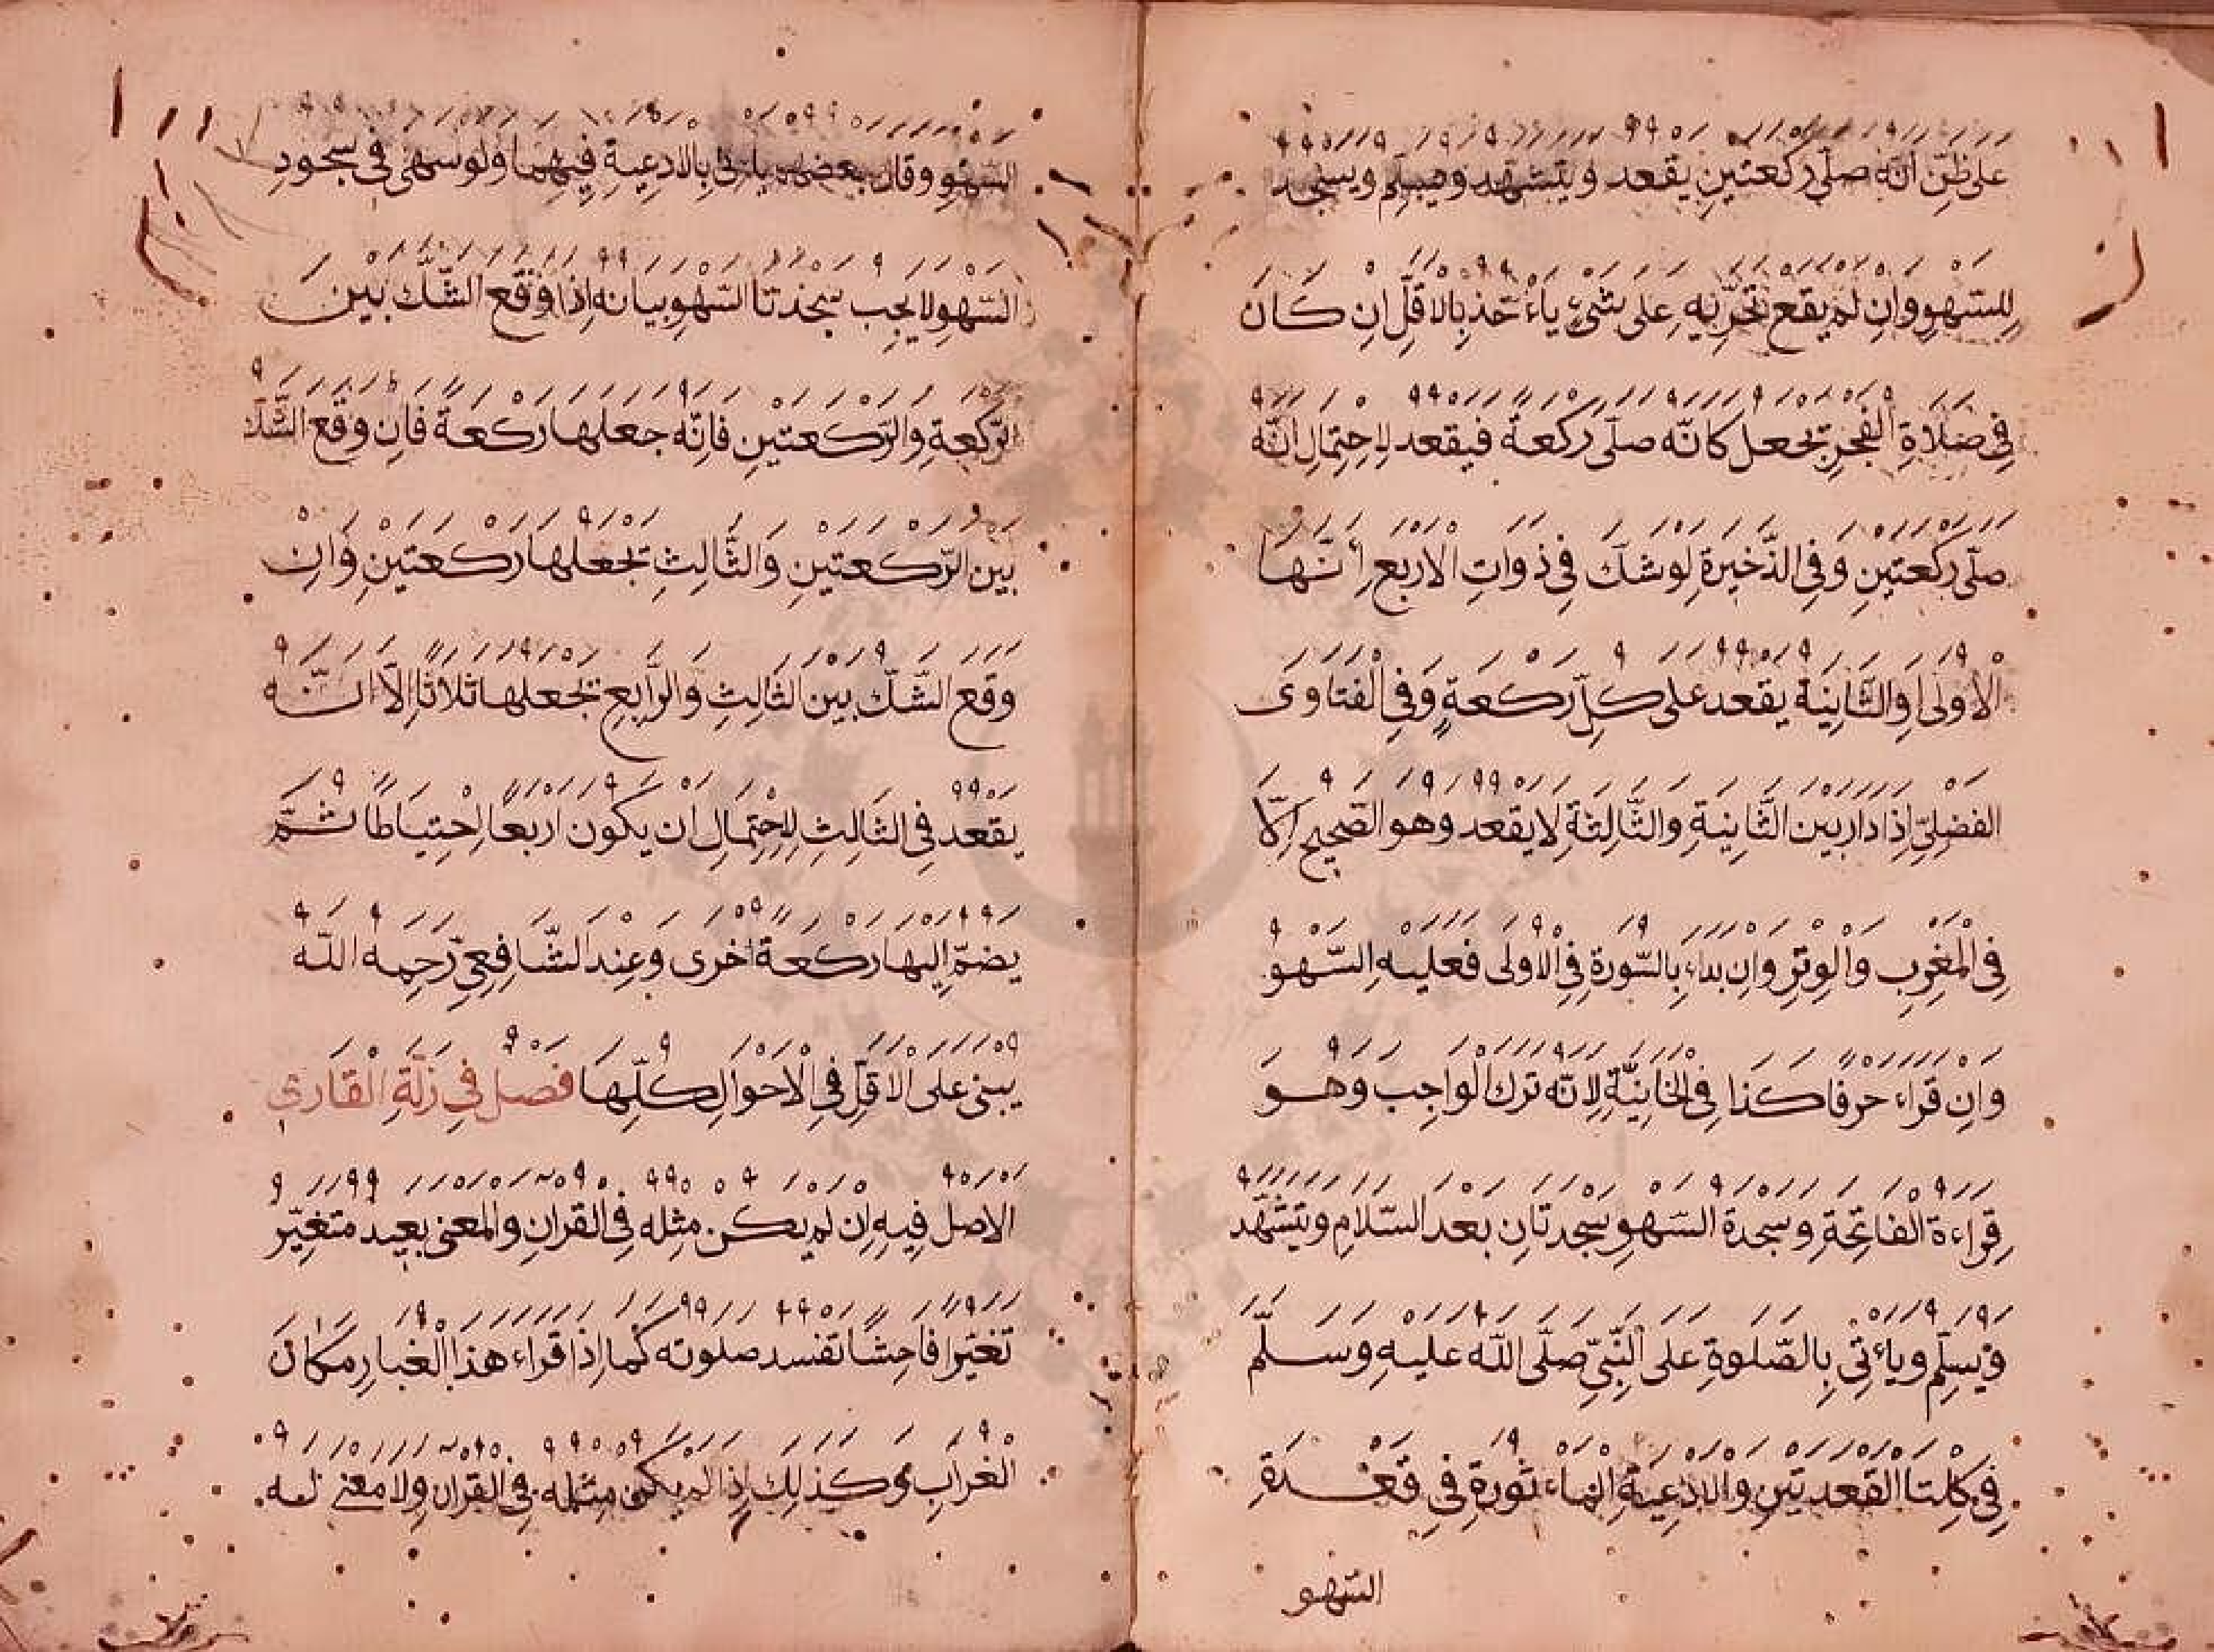 على ظن انه صلى ركعتين يقعد ويتشهد ويسلم ويسجد
للسهو وان لم يقع تحريه على شيء ياءخذ بالاقل ان كان
في صلاة الفجر تجعل كانه صلى ركعة فيقعد لاحتمال انه
صلى ركعتين وفي الذخيرة لو شك في ذوات الاربع انها
الاولى او الثانية يقعد على كل ركعة وفي الفتاوى
الفضلي اذا دار بين الثانية والثالثة لا يقعد وهو الصحيح الا
في المغرب والوتر وان بداء بالسورة في الاولى فعليه السهو
وان قراء حرفا كذا في الخانية لانه ترك الواجب وهو
قراءة الفاتحة وسجدة السهو سجدتان بعد السلام ويتشهد
ويسلم وياءتي بالصلوة على النبي صلى الله عليه وسلم
في كلتا القعدتين والادعية الماءثورة في قعدة
السهو
السهو وقال بعضهم ياتى بالادعية فيهما ولو سهى في سجود
السهو لا يجب سجدتا السهو بيانه اذا وقع الشك بين
الركعة والركعتين فانه جعلها ركعة فان وقع الشك
بين الركعتين والثالث تجعلها ركعتين وان
وقع الشك بين الثالث والرابع تجعلها ثلاثا الا انه
يقعد في الثالث لاحتمال ان يكون اربعا احتياطا ثم
يضم اليها ركعة اخرى وعند الشافعي رحمه الله
يبنى على الاقل في الاحوال كلها فصل في زلة القارئ
الاصل فيه ان لم يكن مثله في القران والمعنى بعيد متغير
تغيرا فاحشا تفسد صلوته كما اذا قراء هذا الغبار مكان
الغراب وكذلك اذا لم يكن مثله في القران ولا معنى له